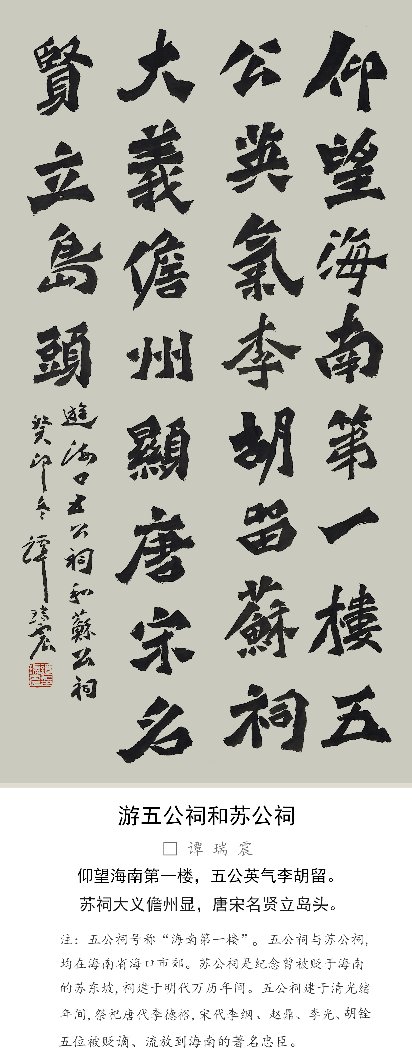 仰望海南第一樓五
公英氣李胡留蘇祠
大義儋州顯唐宋名
賢立島頭
遊海口五公祠和蘇公祠
癸卯冬譚瑞宸
游五公祠和苏公祠
□ 谭瑞宸
仰望海南第一楼，五公英气李胡留。
苏祠大义儋州显，唐宋名贤立岛头。
注：五公祠号称“海南第一楼”。五公祠与苏公祠，
均在海南省海口市郊。苏公祠是纪念曾被贬于海南
的苏东坡，祠建于明代万历年间。五公祠建于清光绪
年间，祭祀唐代李德裕，宋代李纲、赵鼎、李光、胡铨
五位被贬谪、流放到海南的著名忠臣。